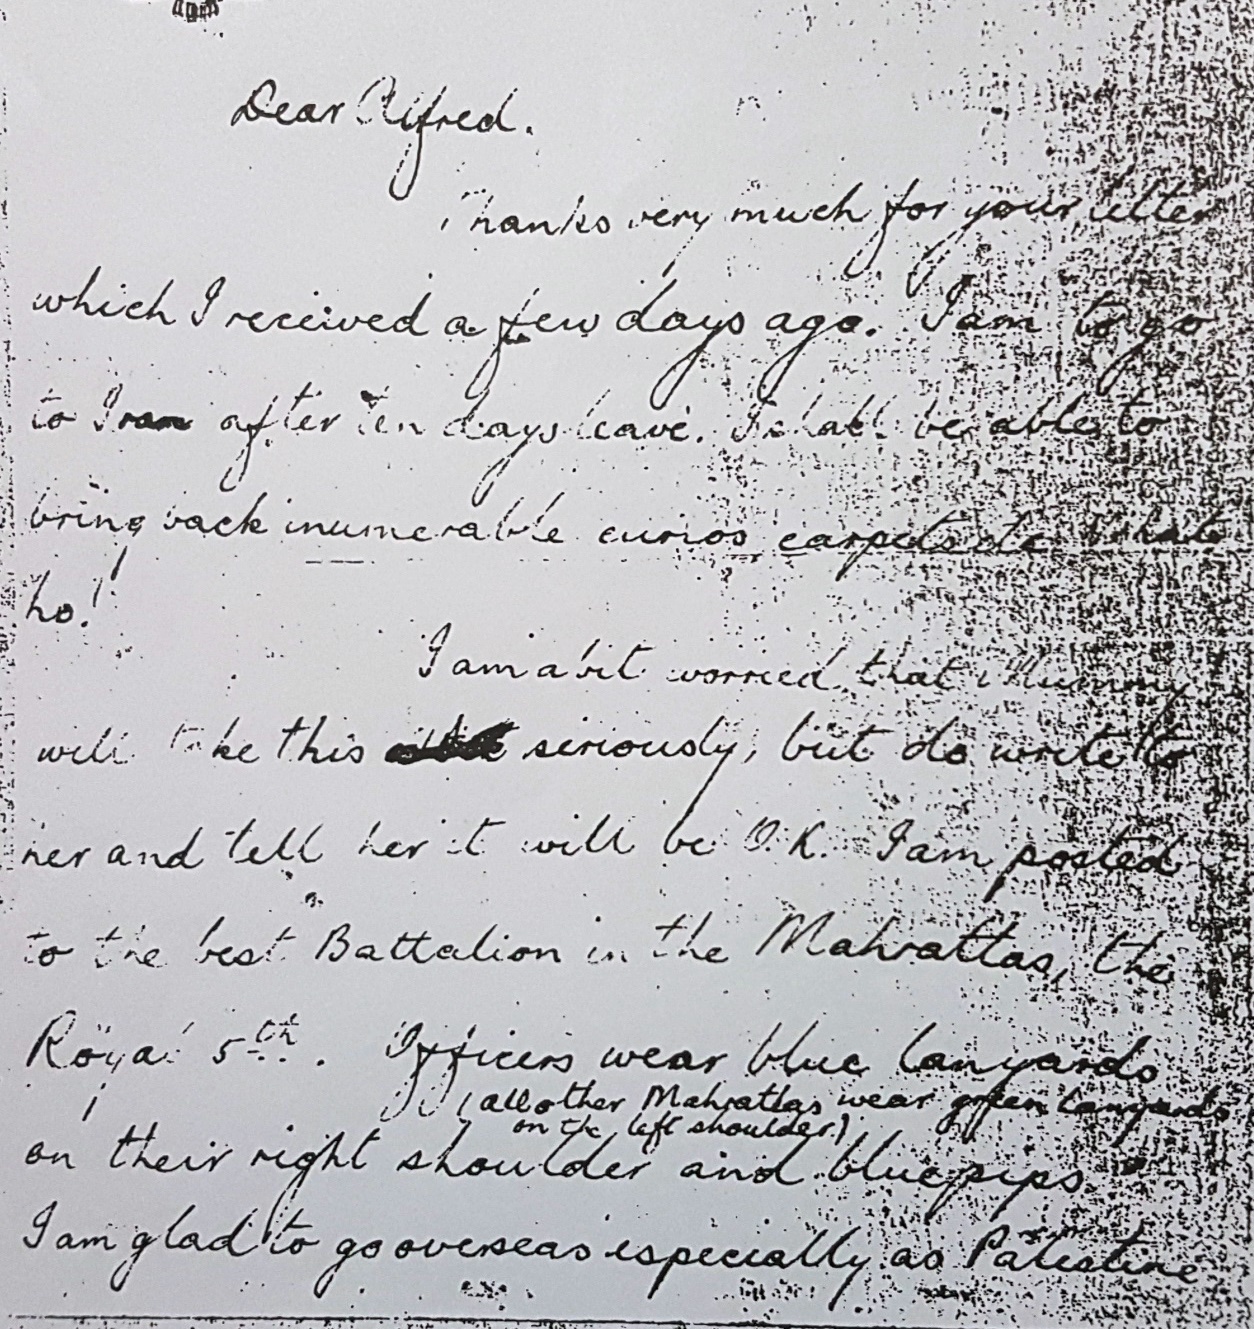 Dear Alfred.
Thanks very much for your letter
which I received a few days ago. I am to go
to Iran after ten days leave. I shall be able to
bring back inumerable curios carpets etc What
ho!
I am a bit worried that Mummy
will take this seriously, but do write to
her and tell her it will be O.K. I am posted
to the best Battalion in the Mahrattas, the
Royal 5th. Officers wear blue lanyards
(all other Mahrattas wear green lanyards
on the left shoulder)
on their right shoulder and blue pips
I am glad to go overseas especially as Palestine